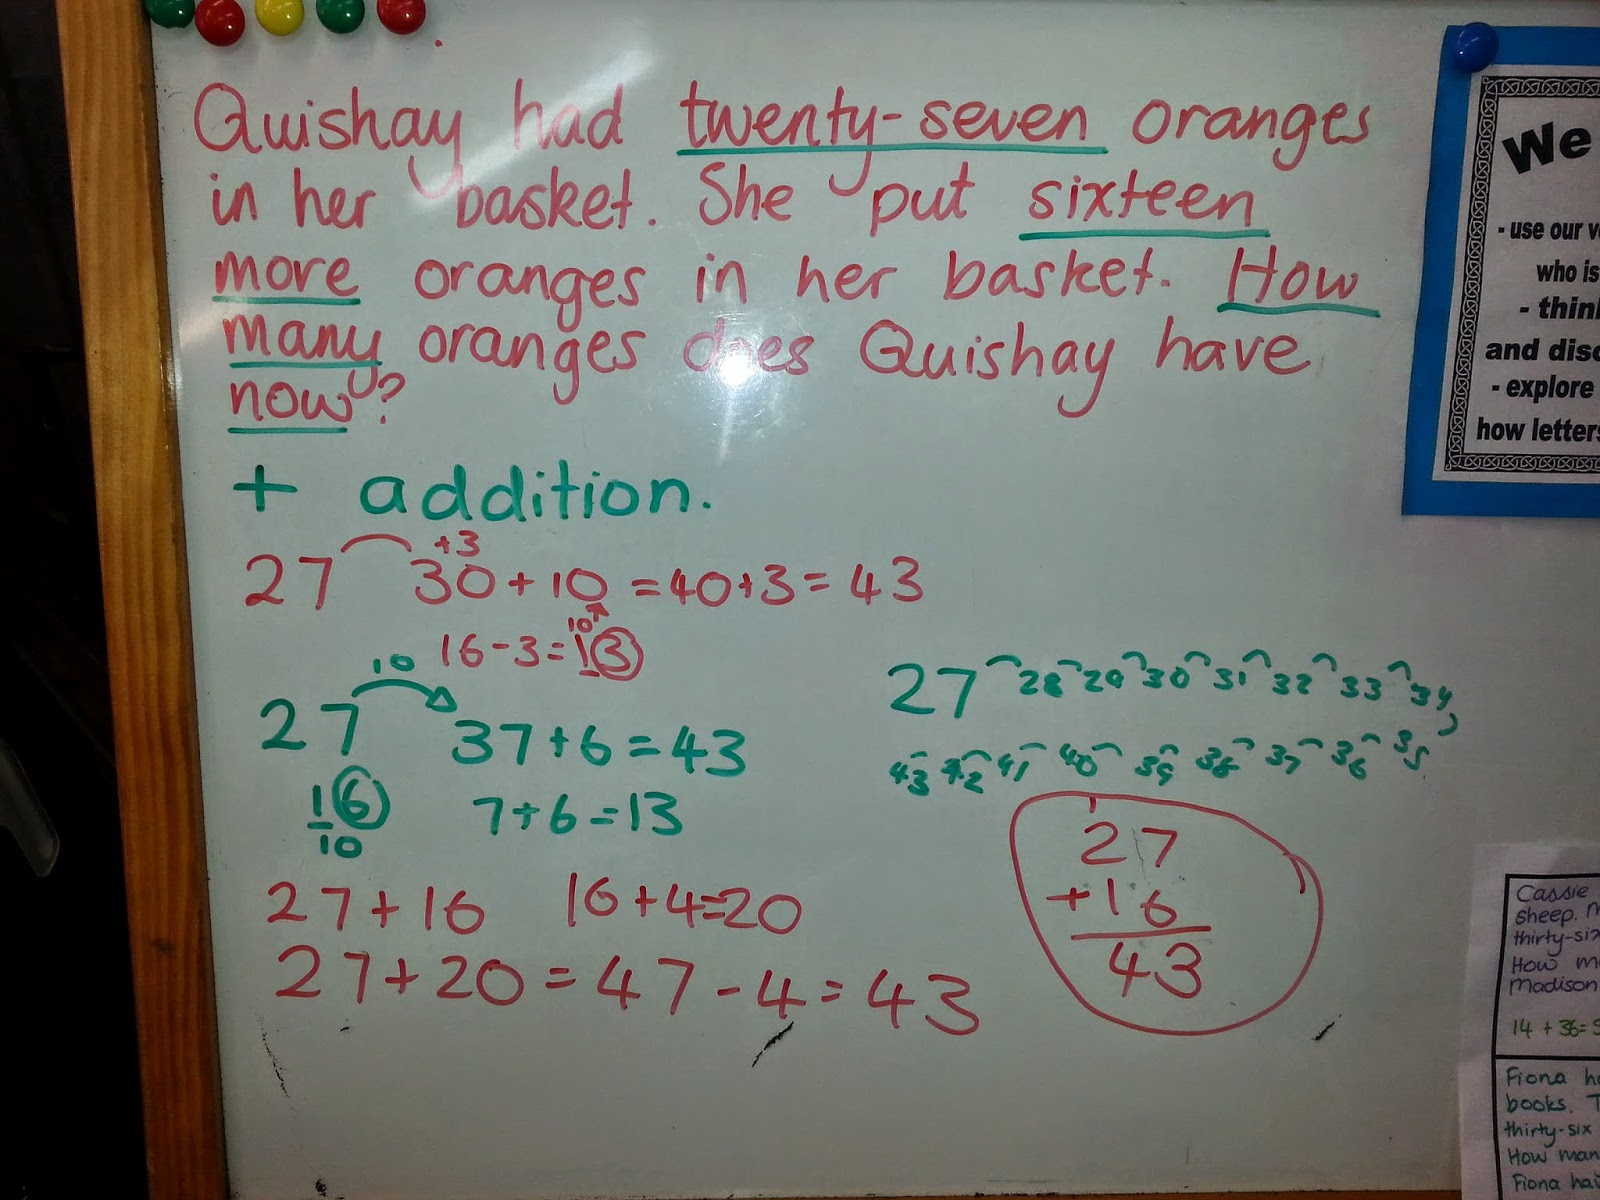 Quishay had twenty-seven oranges
in her basket. She put sixteen
more oranges in her basket. How
many oranges does Quishay have
now?
+ addition.
+3
27 30 + 10 = 40 + 3 = 43
10
16 - 3 = 13
10
27 37 + 6 = 43
16 7 + 6 = 13
10
27 + 16 16 + 4 = 20
27 + 20 = 47 - 4 = 43
27 28 29 30 31 32 33 34
43 42 41 40 39 38 37 36 35
1
27
+16
43
We
- use our
who is
- think
and disc
- explore
how letters
Cassie
sheep.
thirty-six
How
Madison
14 + 36 =
Fiona
books.
thirty-six
How man
Fiona